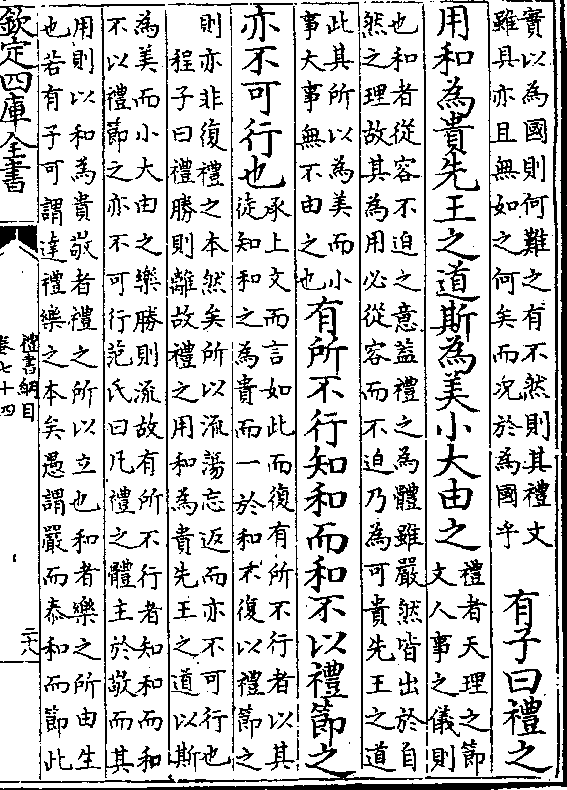 實以為國則何難之有不然則其禮文
雖具亦且無如之何矣而況於為國乎
有子曰禮之
用和為貴先王之道斯為美小大由之
禮者天理之節
文人事之儀則
也和者從容不迫之意蓋禮之為體雖嚴然皆出於自
然之理故其為用必從容而不迫乃為可貴先王之道
此其所以為美而小
事大事無不由之也
有所不行知和而和不以禮節之
亦不可行也
承上文而言如此而復有所不行者以其
徒知和之為貴而一於和不復以禮節之
則亦非復禮之本然矣所以流蕩忘返而亦不可行也
程子曰禮勝則離故禮之用和為貴先王之道以斯
為美而小大由之樂勝則流故有所不行者知和而和
不以禮節之亦不可行范氏曰凡禮之體主於敬而其
用則以和為貴敬者禮之所以立也和者樂之所由生
也若有子可謂達禮樂之本矣愚謂嚴而泰和而節此
欽定四庫全書
禮書綱目
卷七十四